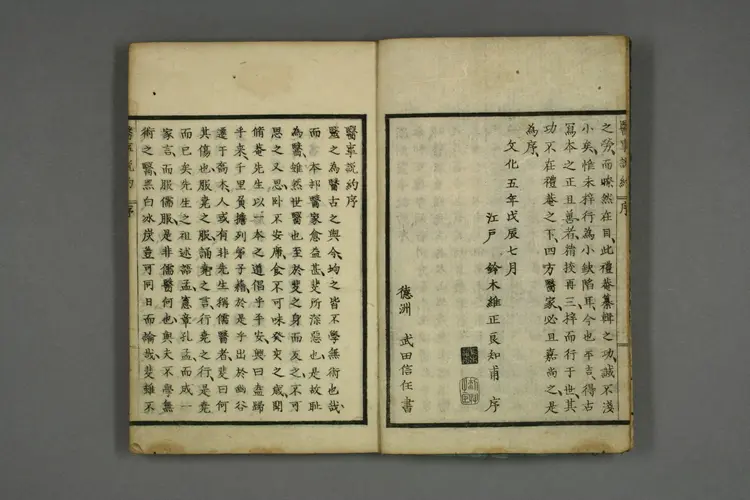 醫事說約 序
之勞而瞭然在目此禮菴纂輯之功誠不淺
小矣惟未梓行為小缺陷耳今也平吉得古
寫本之正且善者精挍再三梓而行于世其
功不在禮菴之下四方醫家必且嘉尚之是
為序
文化五年戊辰七月
江戶 鈴木維正良知甫 序
德洲 武田信任書
醫事說約序
醫之為醫古之與今均之皆不學無術也哉
而 本邦醫家愈益甚斐所深惡也是故恥
為醫雖然世醫也至於斐之身而廢之不可
思之又思卧不安席食不可味癸亥之歲聞
脩菴先生以一本之道倡乎平安興曰盍歸
乎來千里負擔列弟子籍於是乎出於幽谷
遷于喬木人或有非先生稱儒醫者斐曰何
其傷也服堯之服誦堯之言行堯之行是堯
而已矣先生之祖述語孟憲章孔孟而成一
家言而服儒服是非儒醫何也與夫不學無
術之醫黑白冰炭豈可同日而論哉斐雖不
醫事說約 序